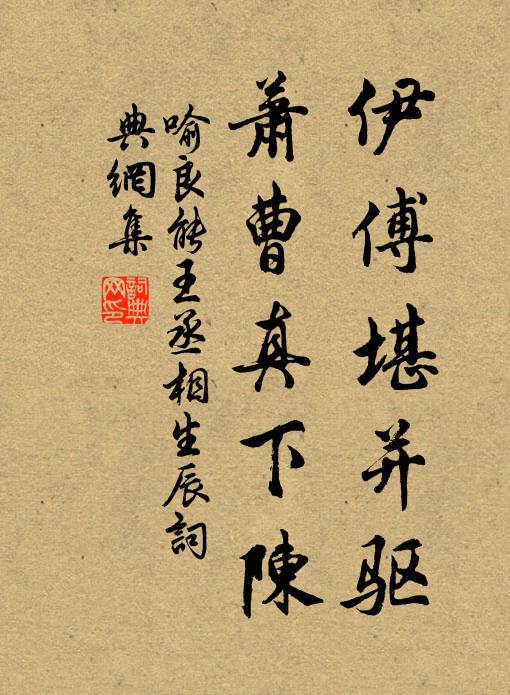 伊傅堪并驱
蕭曹真下陳
喻良能王丞相生辰詞
典網集
詞典
网印